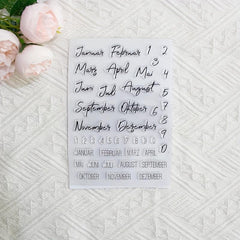 Januar Februar 1
2
3
März April Mai 4
5
Juni Juli August
September Oktober 6
7
8
November Dezember 9
0
1 2 3 4 5 6 7 8 9 0
JANUAR FEBRUAR MÄRZ APRIL
MAI JUNI JULI AUGUST SEPTEMBER
OKTOBER NOVEMBER DEZEMBER